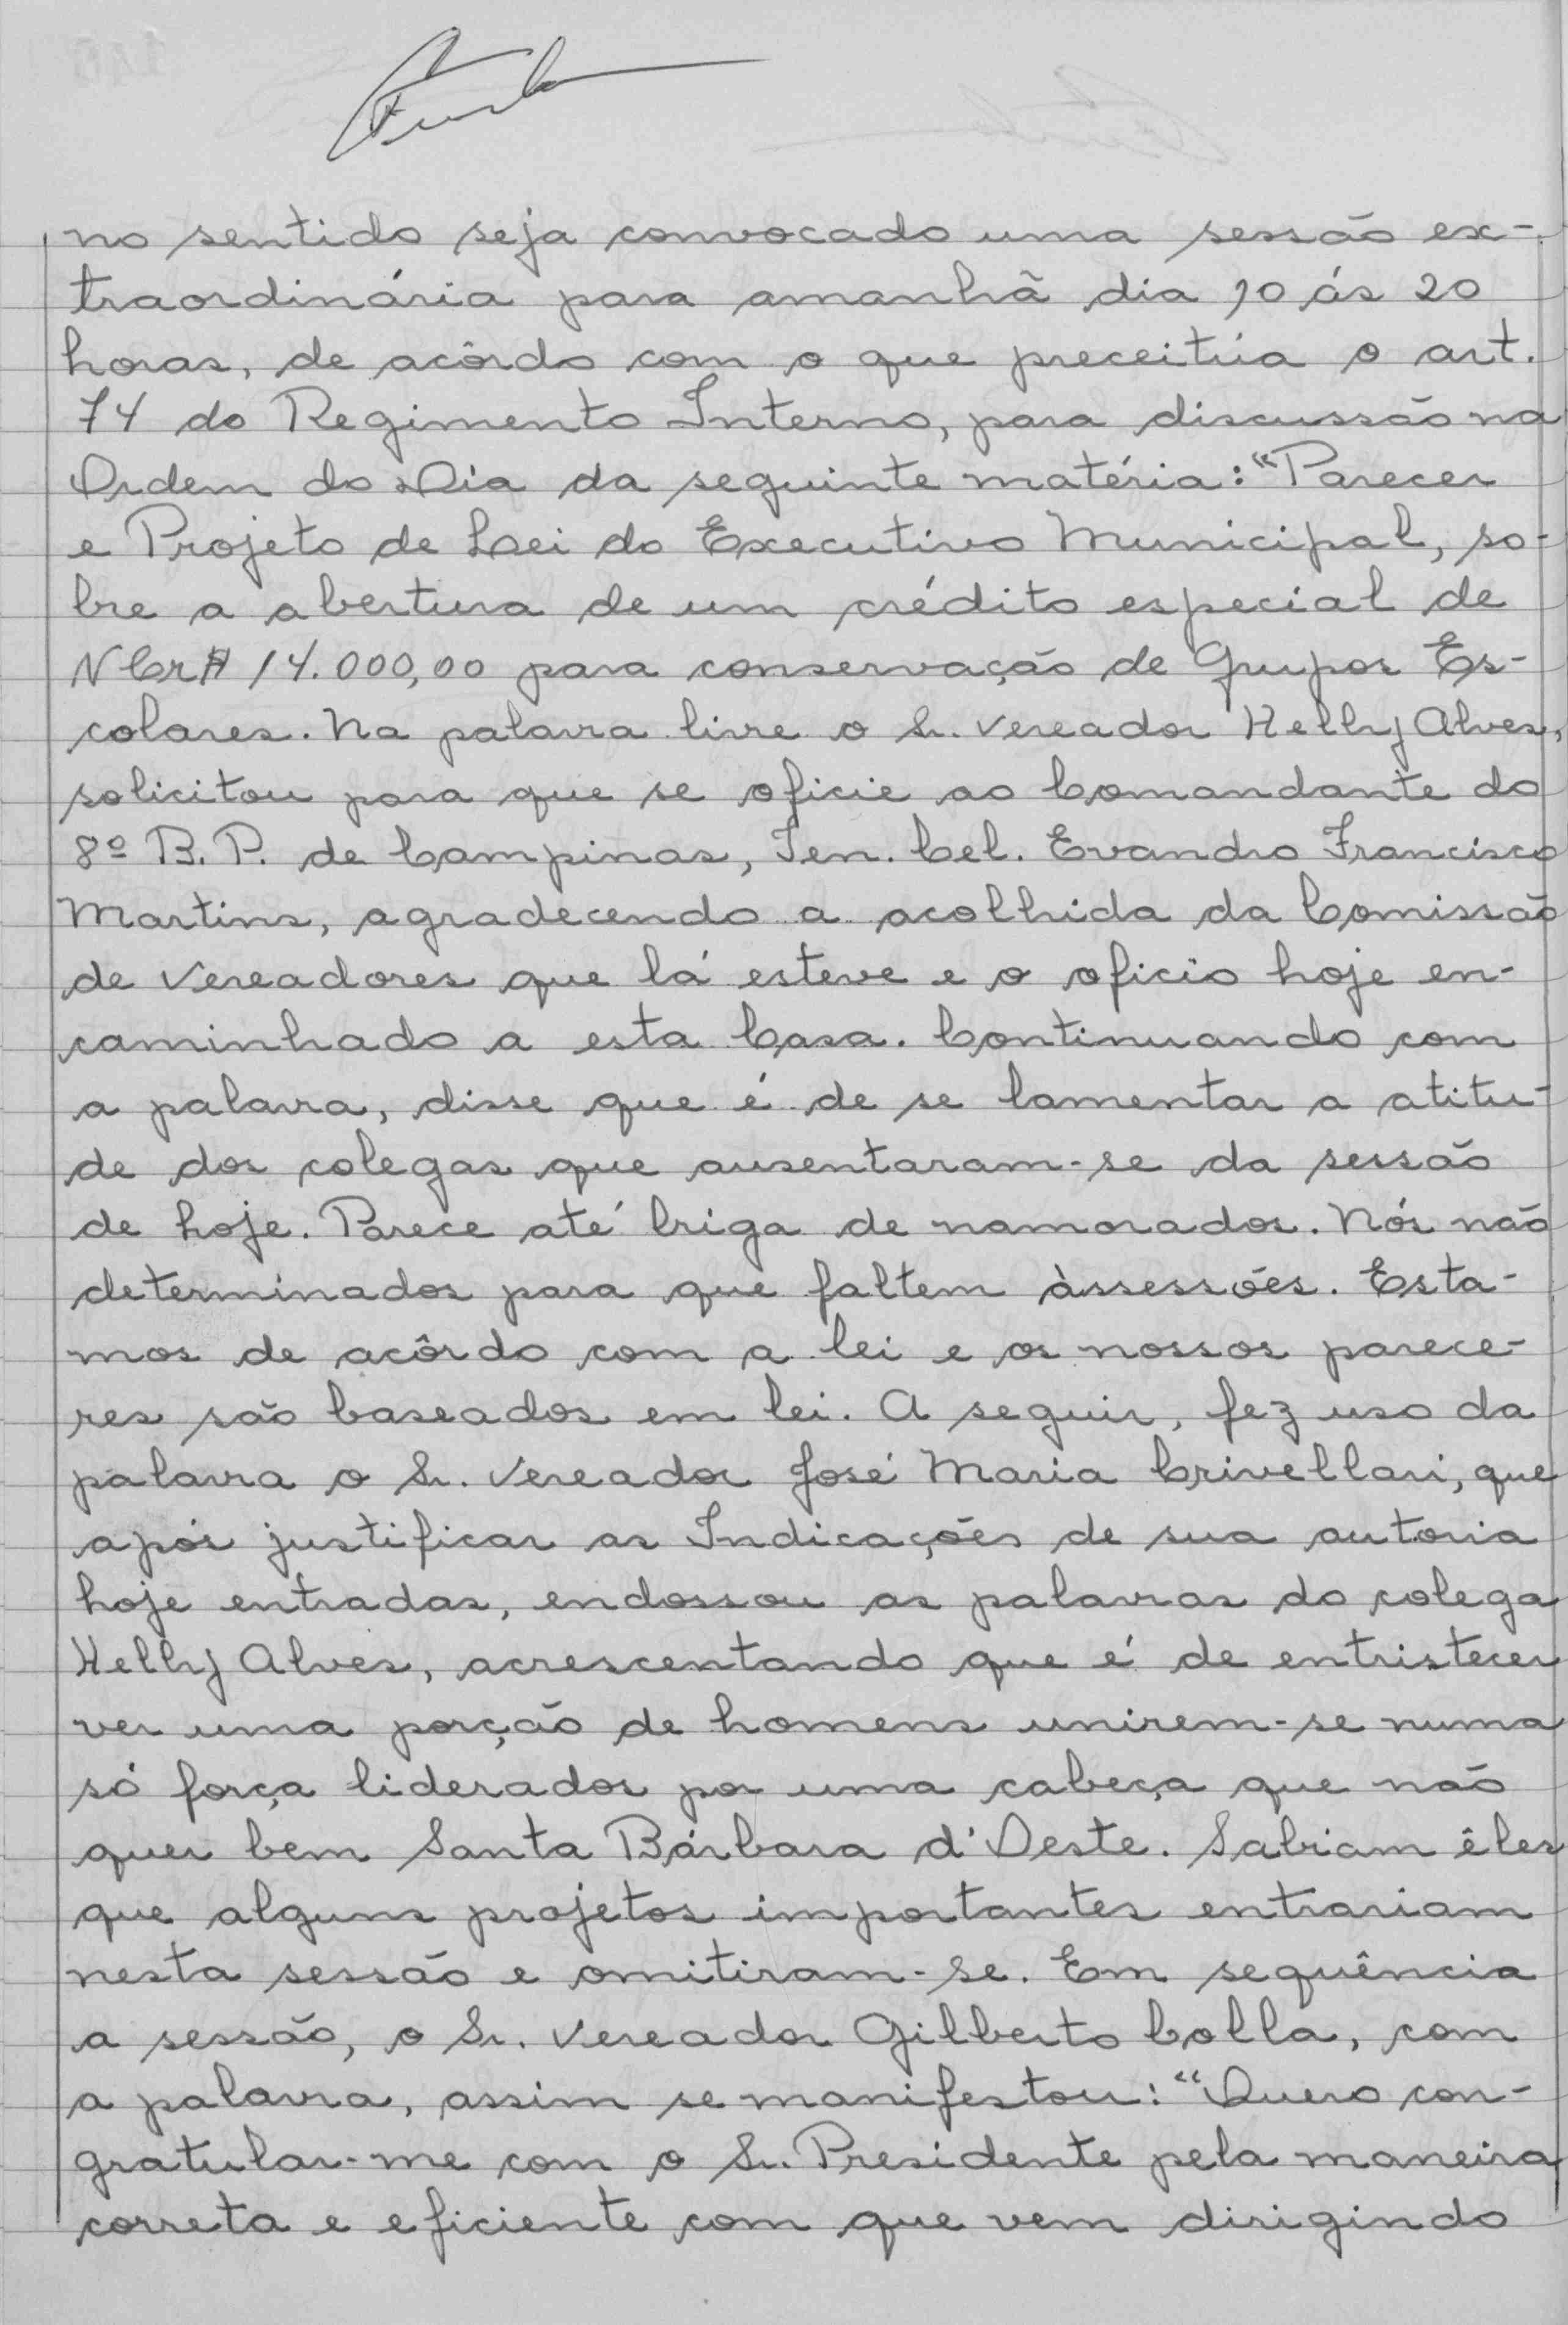 no sentido seja convocado uma sessão ex-
traordinária para amanhã dia 10 ás 20
horas, de acôrdo com o que preceitúa o art.
74 do Regimento Interno, para discussão na
Ordem do Dia da seguinte matéria: "Parecer
e Projeto de Lei do Executivo Municipal, so-
bre a abertura de um crédito especial de
NCr$ 14.000,00 para conservação de Grupos Es-
colares. Na palavra livre o Sr. Vereador Helly Alves,
solicitou para que se oficie ao Comandante do
8º B. P. de Campinas, Ten. Cel. Evandro Francisco
Martins, agradecendo a acolhida da Comissão
de Vereadores que lá esteve e o oficio hoje en-
caminhado a esta Casa. Continuando com
a palavra, disse que é de se lamentar a atitu-
de dos colegas que ausentaram-se da sessão
de hoje. Parece até briga de namorados. Nós não
determinados para que faltem àssessões. Esta-
mos de acôrdo com a lei e os nossos parece-
res são baseados em lei. A seguir, fez uso da
palavra o Sr. Vereador José Maria Crivellari, que
após justificar as Indicações de sua autoria
hoje entradas, endossou as palavras do colega
Helly Alves, acrescentando que é de entristecer
ver uma porção de homens unirem-se numa
só força liderados por uma cabeça que não
quer bem Santa Bárbara d'Oeste. Sabiam êles
que alguns projetos importantes entrariam
nesta sessão e omitiram-se. Em sequência
a sessão, o Sr. Vereador Gilberto Colla, com
a palavra, assim se manifestou: "Quero con-
gratular-me com o Sr. Presidente pela maneira
correta e eficiente com que vem dirigindo